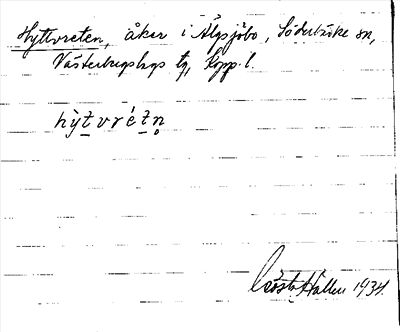 Hyttvreten, åker i Älgsjöbo, Söderbärke sn,
Västerbergslags tg, Kopp. l.
hỳtvrétn̥
Gösta Hallén 1934.